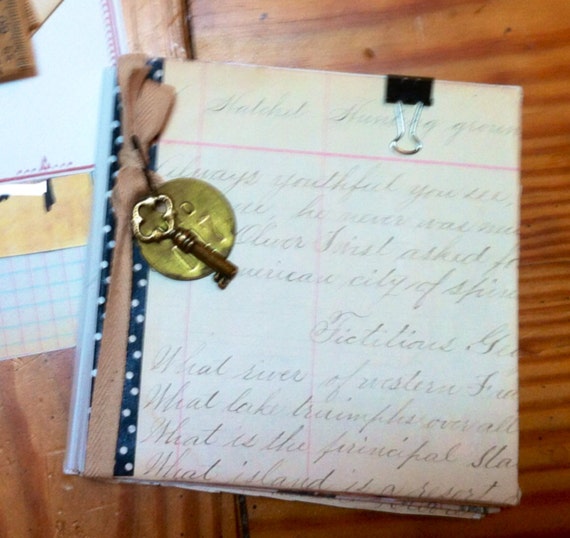 Hatchet Hunting groun
Always youthful you see,
he never was mu
Oliver Twist asked fo
merican city of spir
Fictitious Geo
What river of western Fra
What lake triumphs over all
What is the principal Sta
What island is a resort